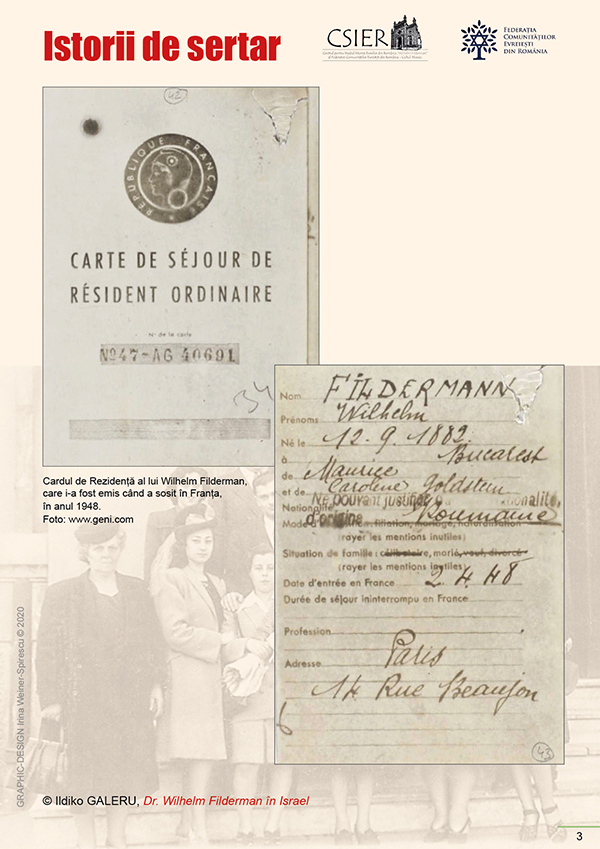 Istorii de sertar
CSIER
FEDERAȚIA
COMUNITĂȚILOR
EVREIEȘTI
DIN ROMÂNIA
42
REPUBLIQUE FRANÇAISE
CARTE DE SÉJOUR DE
RÉSIDENT ORDINAIRE
N° de la carte
Nº47-AG 40691
34
Cardul de Rezidență al lui Wilhelm Filderman,
care i-a fost emis când a sosit în Franța,
în anul 1948.
Foto: www.geni.com
Nom FILDERMANN
Prénoms Wilhelm
Né le 12.9.1882
à Bucarest
de Maurice
et de Caroline Goldstein
Ne pouvant justifier nationalité
Nationalité d'origine Roumaine
Mode filiation, mariage, naturalisation
(rayer les mentions inutiles)
Situation de famille : célibataire, marié, veuf, divorcé
(rayer les mentions inutiles)
Date d'entrée en France 2 4 48
Durée de séjour ininterrompu en France
Profession
Adresse Paris
14 Rue Beaujon
43
GRAPHIC-DESIGN Irina Weiner-Spirescu © 2020
© Ildiko GALERU, Dr. Wilhelm Filderman în Israel
3